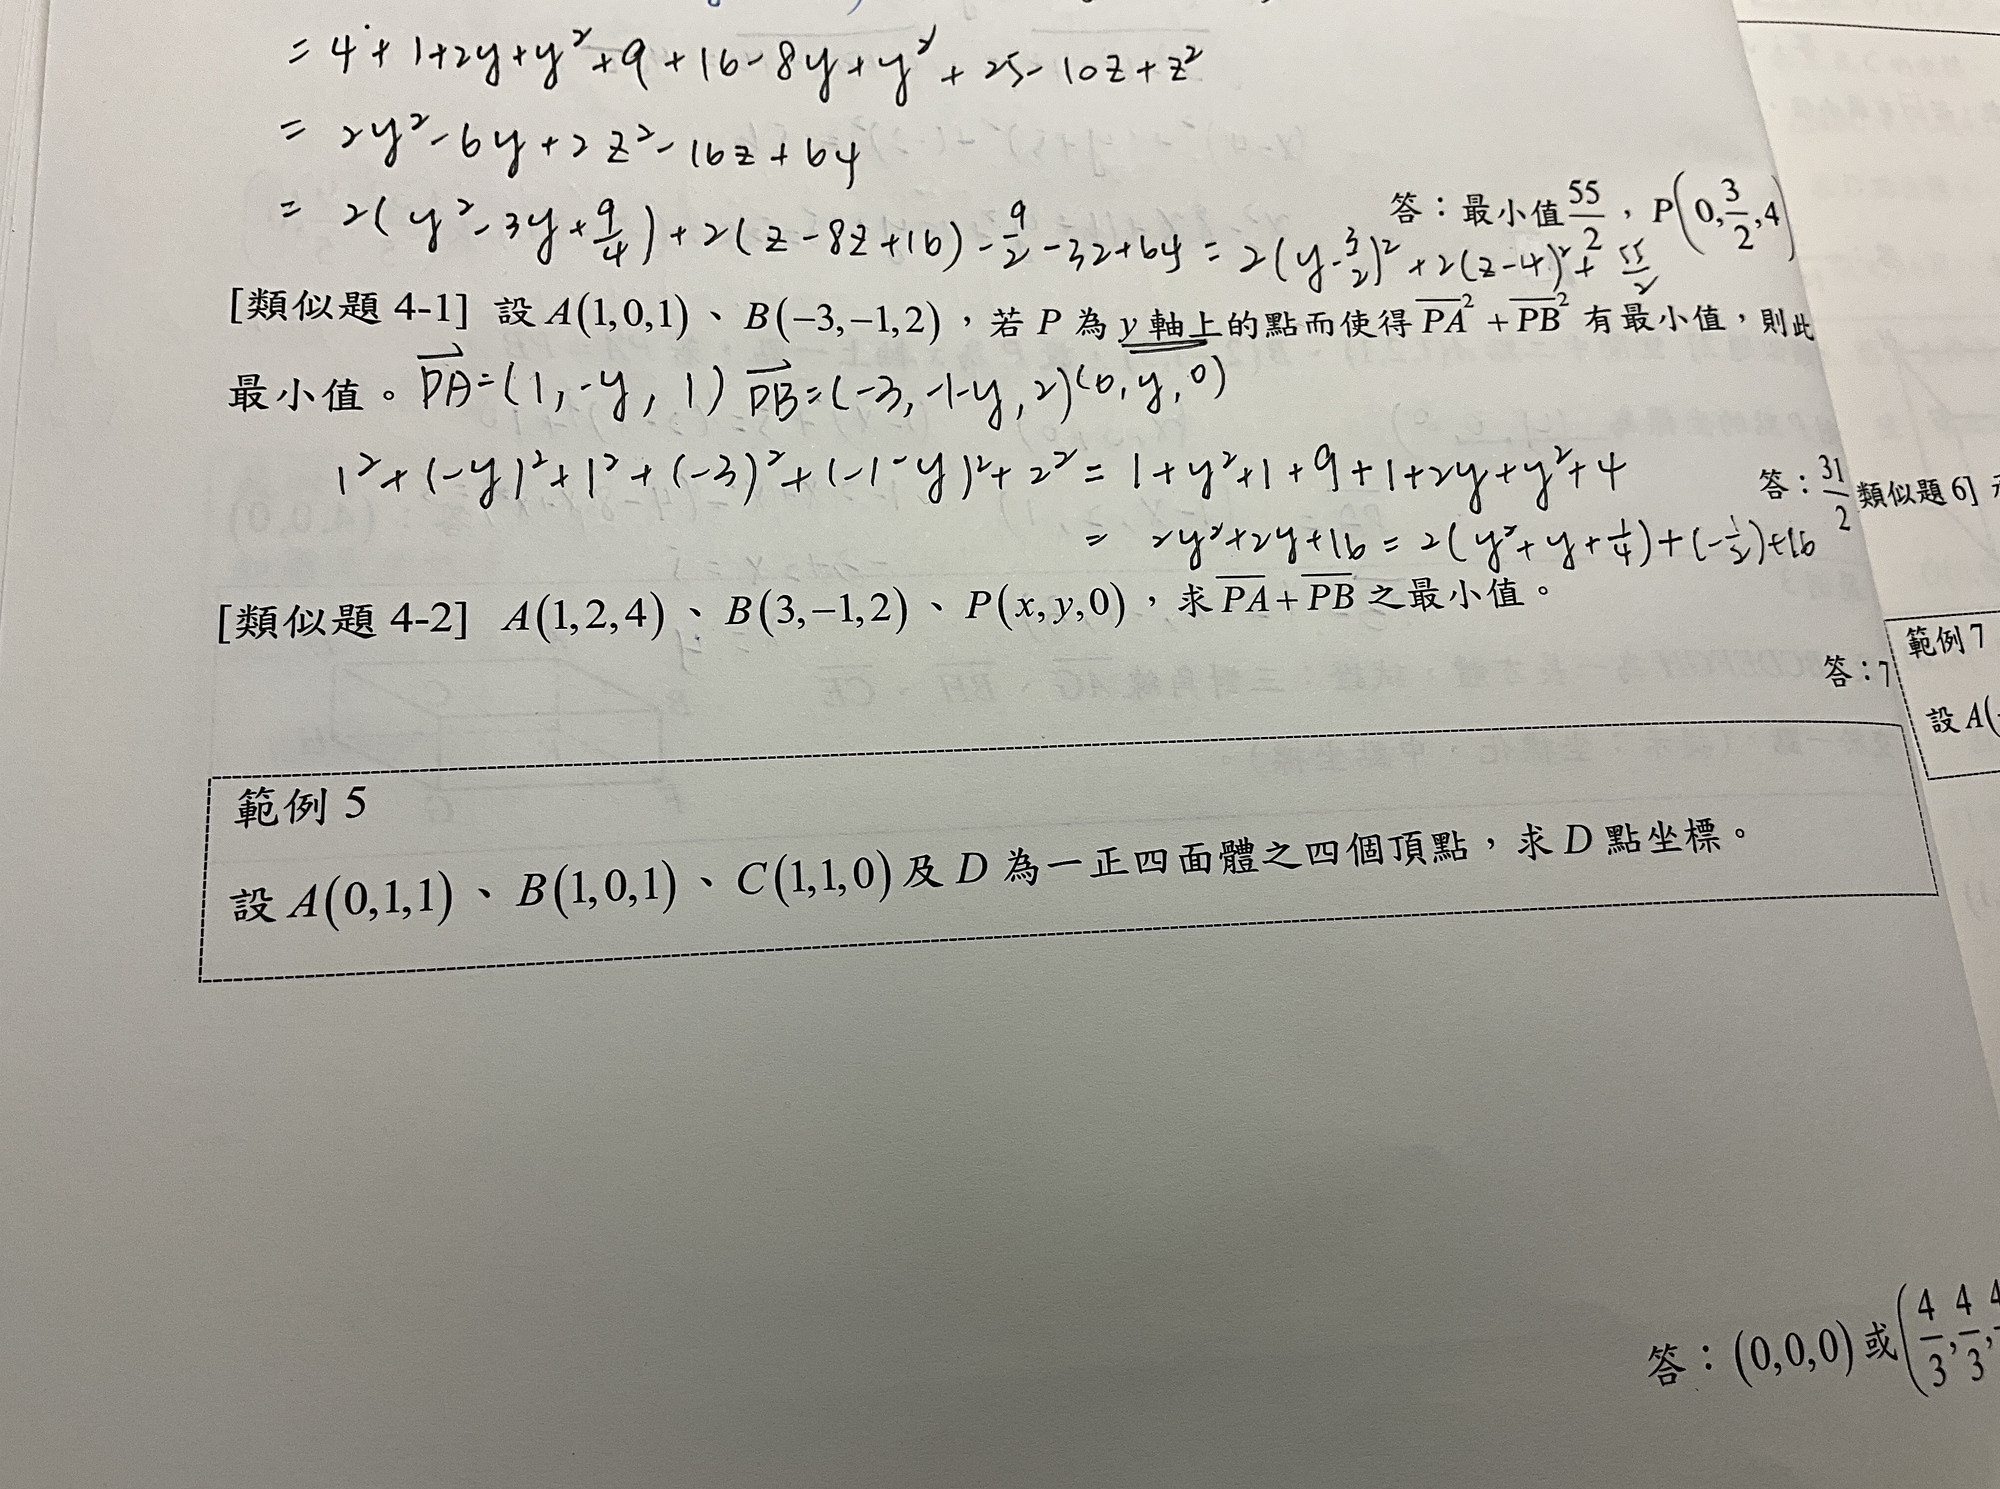 = 4 + 1+2y+y²+9+16-8y+y²+25-10z+z²
= 2y²-6y+2z²-16z+64
= 2(y²-3y+9/4)+2(z-8z+16)-9/2-32+64 = 2(y-3/2)²+2(z-4)²+55/2
答：最小值 55/2，P(0,3/2,4)
[類似題 4-1] 設 A(1,0,1)、B(-3,-1,2)，若 P 為 y 軸上的點而使得 PA²+PB² 有最小值，則此
最小值。PA=(1,-y,1) PB=(-3,-1-y,2) (0,y,0)
1²+(-y)²+1²+(-3)²+(-1-y)²+2² = 1+y²+1+9+1+2y+y²+4
= 2y²+2y+16 = 2(y²+y+1/4)+(-1/2)+16
答：31/2
[類似題 4-2] A(1,2,4)、B(3,-1,2)、P(x,y,0)，求 PA+PB 之最小值。
答：7
範例 5
設 A(0,1,1)、B(1,0,1)、C(1,1,0) 及 D 為一正四面體之四個頂點，求 D 點坐標。
答：(0,0,0) 或 (4/3,4/3,4
類似題 6]
範例 7
設 A(